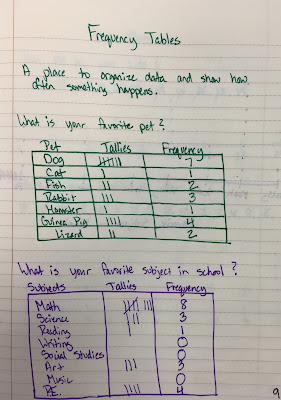 Frequency Tables
A place to organize data and show how
often something happens.
What is your favorite pet?
Pet Tallies Frequency
Dog 7
Cat 1
Fish 2
Rabbit 3
Hamster 1
Guinea Pig 4
Lizard 2
What is your favorite subject in school?
Subjects Tallies Frequency
Math 8
Science 3
Reading 1
Writing 0
Social Studies 0
Art 3
Music 0
P.E. 4
9